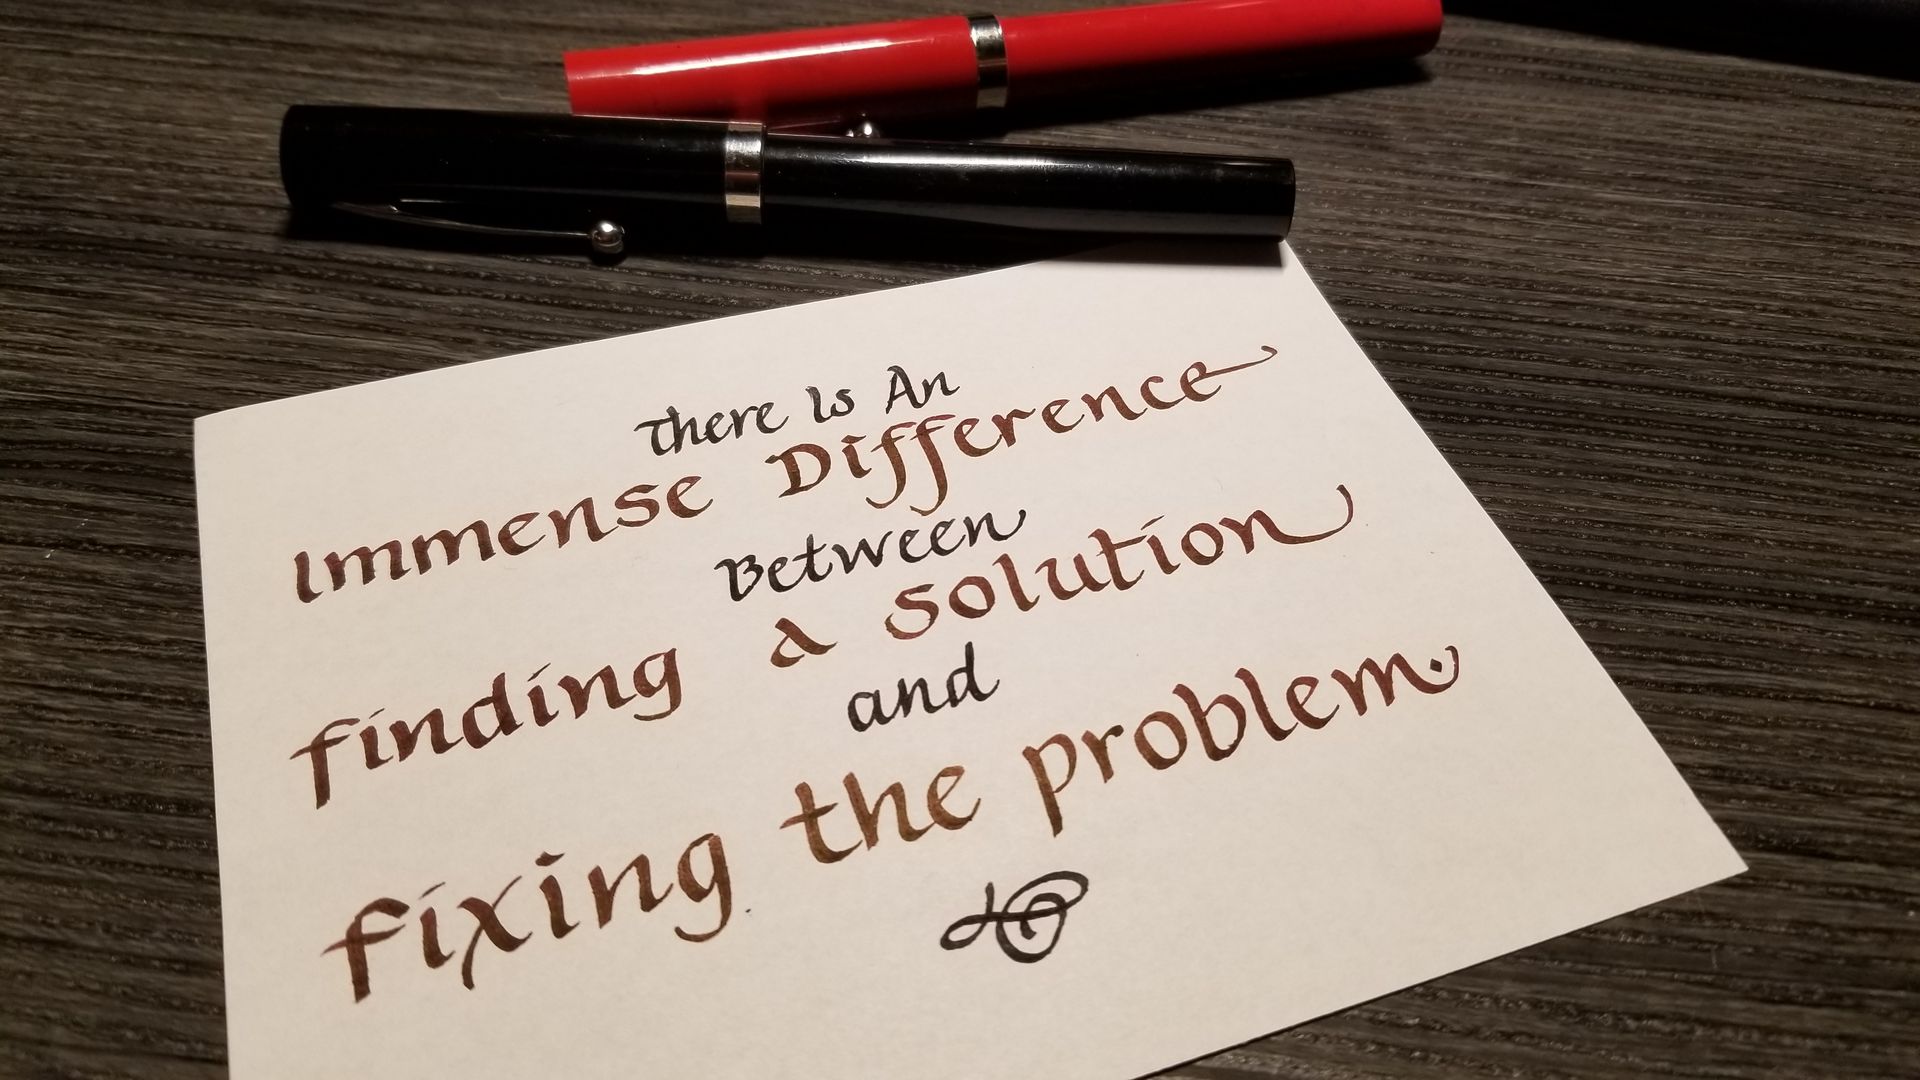 There Is An
Immense Difference
Between
finding a solution
and
fixing the problem.